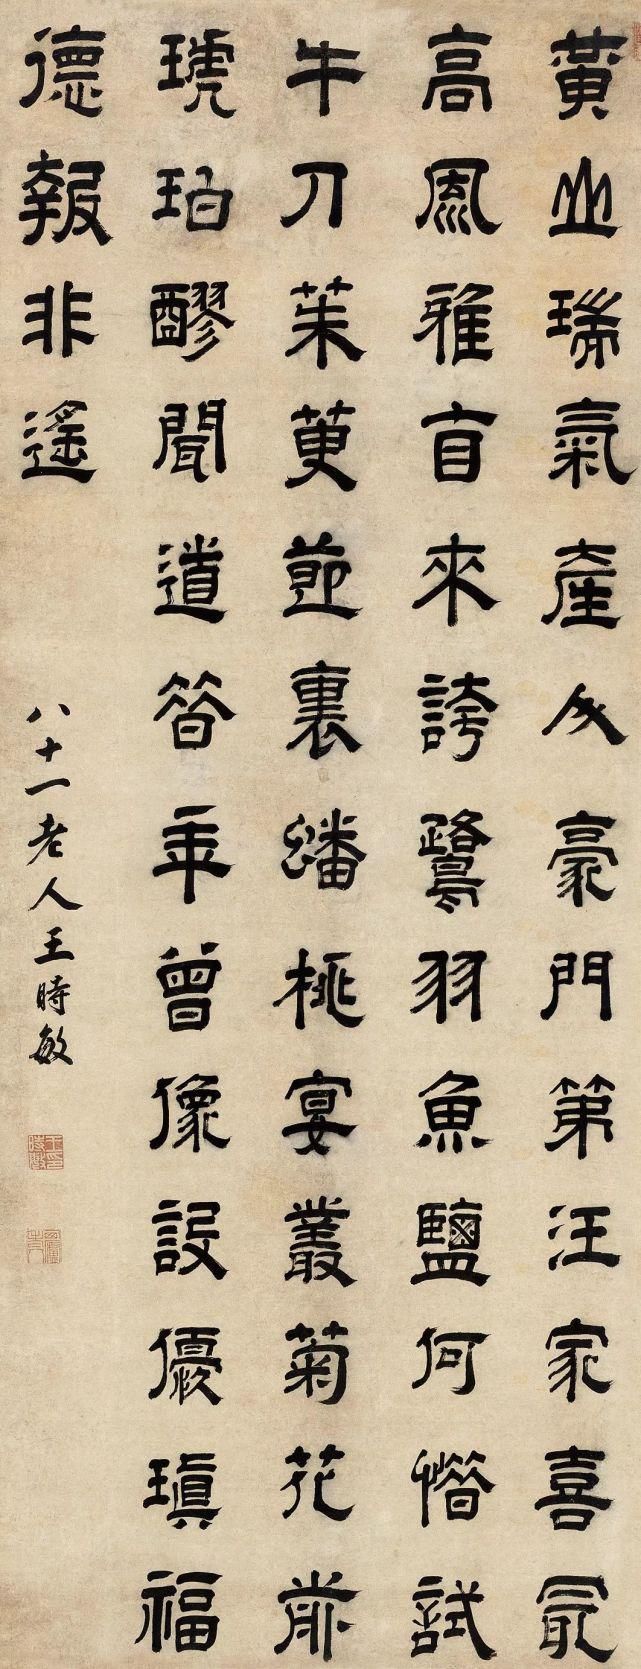 黃山瑞氣產人豪門第汪家喜冣
高風雅來誇鷺羽魚鹽何惜試
牛刀茱萸節裏蟠桃宴叢菊花前
琥珀醪聞道昔年曾像設優瑱福
德報非遙
八十一老人王時敏